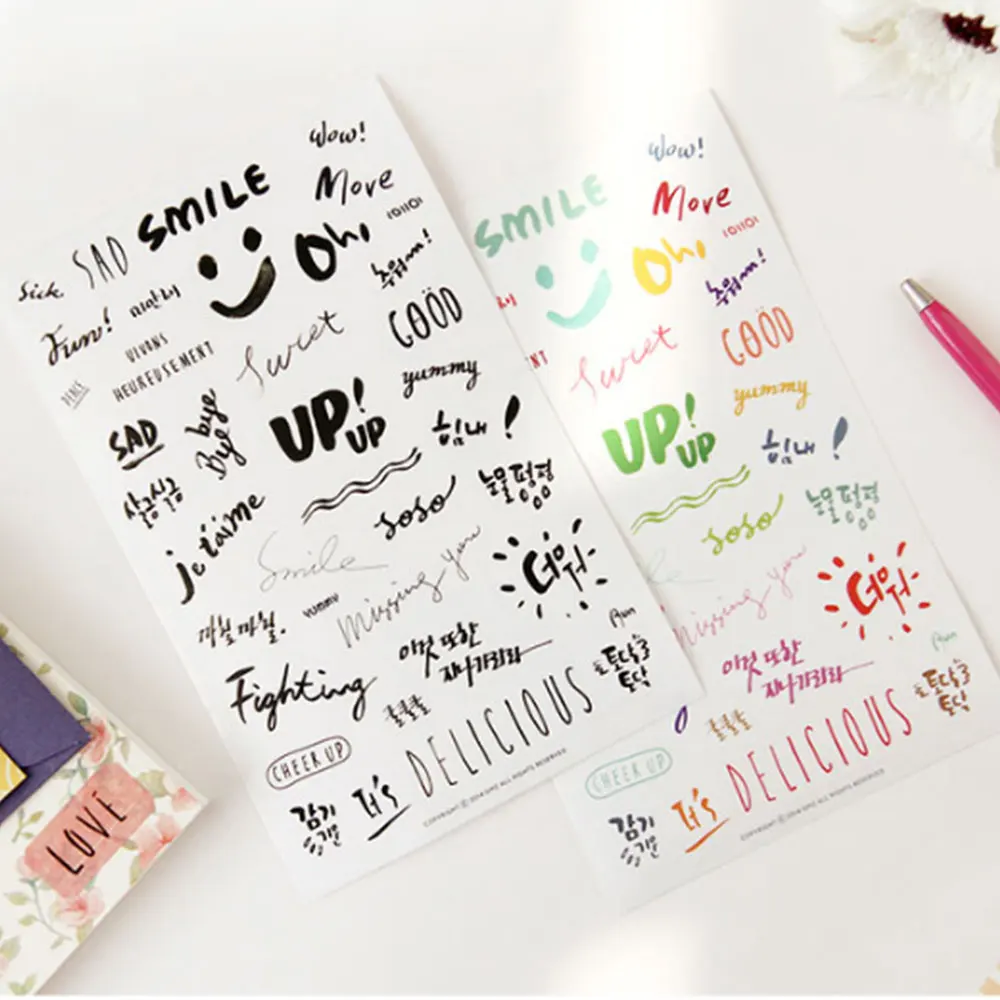 wow!
SMILE
Move
SAD
Oh,
10:1101
추워ㅆㅆ!
Sick.
미안해
Fun!
VIVONS
HEUREUSEMENT
Sweet
GOOD
yummy
SAD
bye
Bye
UP!
UP
힘내!
살금살금
눈물펑펑
je t'aime
soso
Smile
Missing you
더워
yummy
까칠까칠.
이것 또한
지나가리라
Fighting
토닥
토닥
콜콜콜
DELICIOUS
CHEER UP
감기
기운
It's
wow!
SMILE
Move
Oh,
Sweet
GOOD
yummy
UP!
UP
힘내!
soso
눈물펑펑
Missing you
더워
이것 또한
지나가리라
토닥
토닥
콜콜콜
DELICIOUS
CHEER UP
감기
기운
It's
LOVE